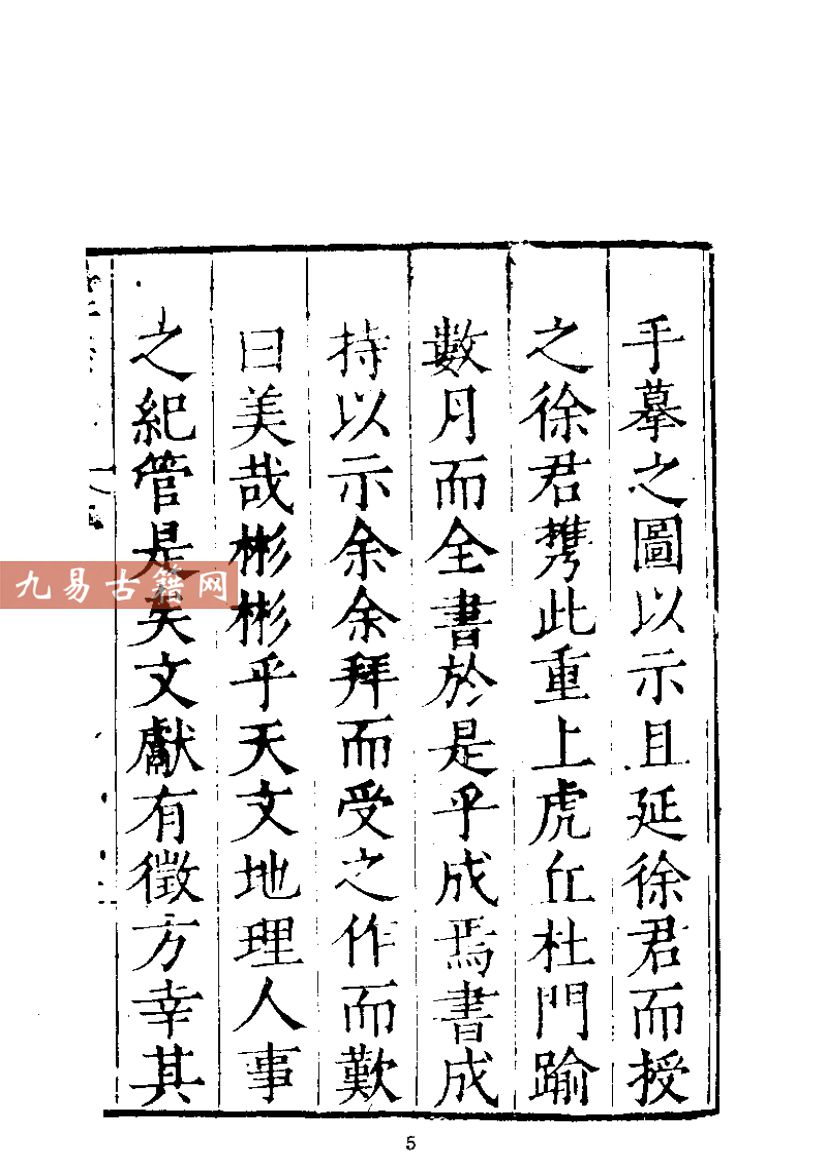 手摹之圖以示且延徐君而授
之徐君携此重上虎丘杜門踰
數月而全書於是乎成焉書成
持以示余余拜而受之作而歎
曰美哉彬彬乎天文地理人事
之紀管是矣文獻有徵方幸其
九易古籍网
5